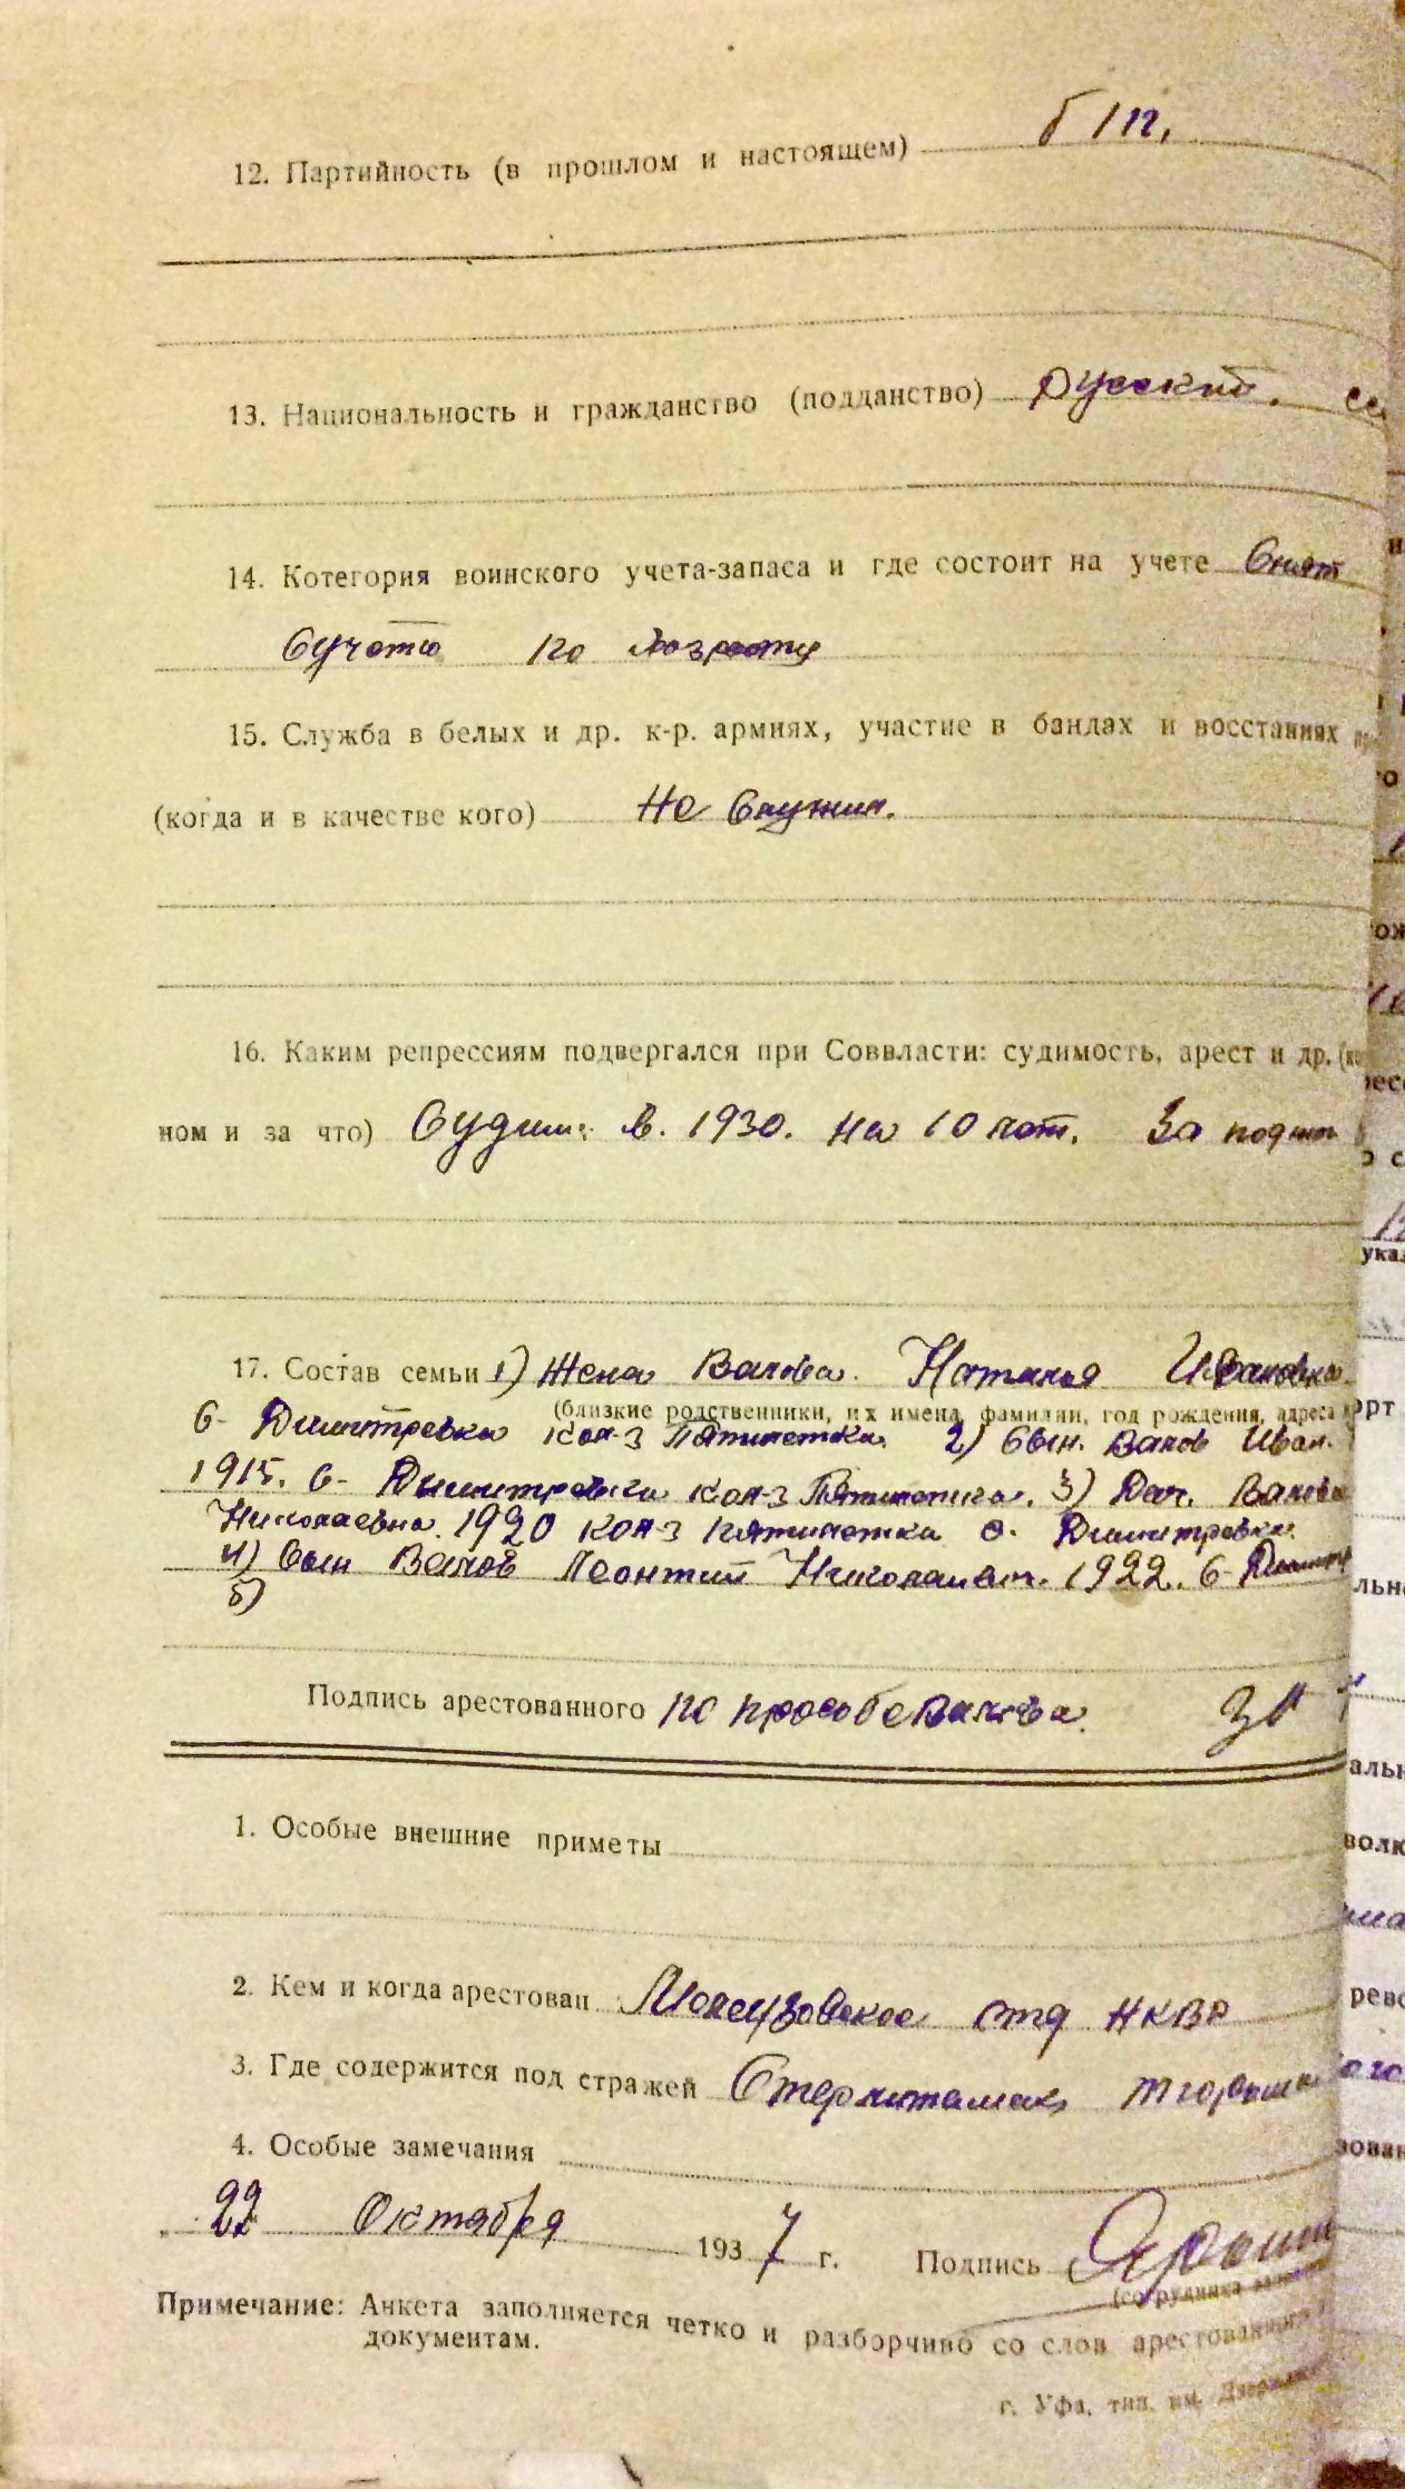 б/п.
12. Партийность (в прошлом и настоящем)
13. Национальность и гражданство (подданство) Русский.
14. Котегория воинского учета-запаса и где состоит на учете Снят
Сучета по возрасту
15. Служба в белых и др. к-р. армиях, участие в бандах и восстаниях
(когда и в качестве кого) Не Служил.
16. Каким репрессиям подвергался при Соввласти: судимость, арест и др.
ном и за что) Судим: в. 1930. на 10 лет. За поджог
17. Состав семьи 1) Жена Валова. Наталья Ивановна.
(близкие родственники, их имена, фамилии, год рождения, адреса
с- Димитревка кол-з Пятилетка. 2) Сын. Валов Иван.
1915. с- Димитревка кол-з Пятилетка. 3) Доч. Валова
Николаевна. 1920 кол-з пятилетка с. Димитревка.
4) Сын Валов Леонтий Николаевич. 1922. с-
5)
Подпись арестованного по прозбе Валова.
1. Особые внешние приметы
2. Кем и когда арестован отд НКВД
3. Где содержится под стражей Стерлитамак
4. Особые замечания
22 Октября 1937 г. Подпись
(сотрудника
Примечание: Анкета заполняется четко и разборчиво со слов арестованного
документам.
г. Уфа, тип. им.